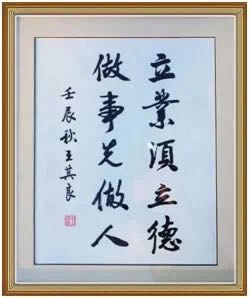 立業須立德
做事先做人
壬辰秋王其良